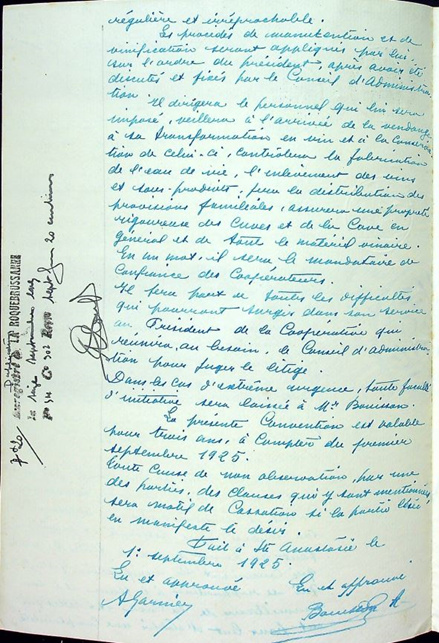 régulière et irréprochable.
Les procédés de manutention et de
vinification seront appliqués par lui
sur l'ordre du président, après avoir été
discutés et fixés par le Conseil d'Administra
tion.
Il dirigera le personnel qui lui sera
imposé, veillera à l'arrivée de la vendange
à sa transformation en vin et à la conserva
tion de celui-ci, contrôlera la fabrication
de l'eau de vie, l'enlèvement des vins
et sous-produits, fera la distribution des
provisions familiales, assurera une propreté
rigoureuse des Cuves et de la Cave en
général et de tout le matériel vinaire.
En un mot, il sera le mandataire de
Confiance des Coopérateurs.
Il fera part de toutes les difficultés
qui pourront surgir dans son service
au Président de la Coopérative qui
réunira, au besoin, le Conseil d'administra
tion pour juger le litige.
Dans les cas d'extrême urgence, toute faculté
d'initiative sera laissée à Mr Bouisson.
La présente Convention est valable
pour trois ans, à compter du premier
septembre 1925.
Toute cause de non observation, par une
des parties, des clauses qui y sont mentionnées
sera motif de Cassation si la partie lésée
en manifeste le désir.
Fait à Ste Anastasie le
1er septembre 1925.
Lu et approuvé
Lu et approuvé
AGarnier
Bouisson
LA ROQUEBRUSSANNE